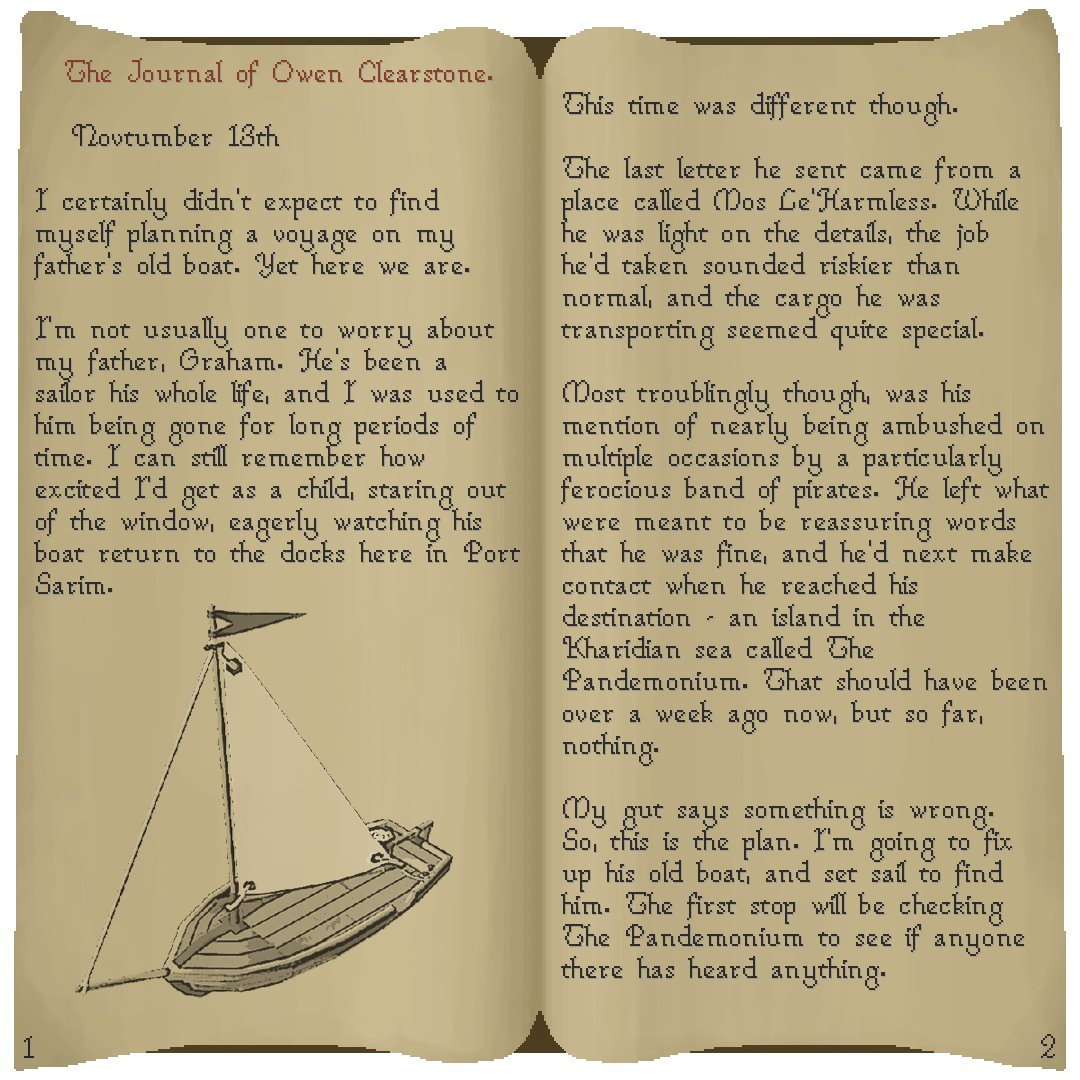 The Journal of Owen Clearstone.
Novtumber 13th
I certainly didn't expect to find
myself planning a voyage on my
father's old boat. Yet here we are.
I'm not usually one to worry about
my father, Graham. He's been a
sailor his whole life, and I was used to
him being gone for long periods of
time. I can still remember how
excited I'd get as a child, staring out
of the window, eagerly watching his
boat return to the docks here in Port
Sarim.
1
This time was different though.
The last letter he sent came from a
place called Mos Le'Harmless. While
he was light on the details, the job
he'd taken sounded riskier than
normal, and the cargo he was
transporting seemed quite special.
Most troublingly though, was his
mention of nearly being ambushed on
multiple occasions by a particularly
ferocious band of pirates. He left what
were meant to be reassuring words
that he was fine, and he'd next make
contact when he reached his
destination - an island in the
Kharidian sea called The
Pandemonium. That should have been
over a week ago now, but so far,
nothing.
My gut says something is wrong.
So, this is the plan. I'm going to fix
up his old boat, and set sail to find
him. The first stop will be checking
The Pandemonium to see if anyone
there has heard anything.
2